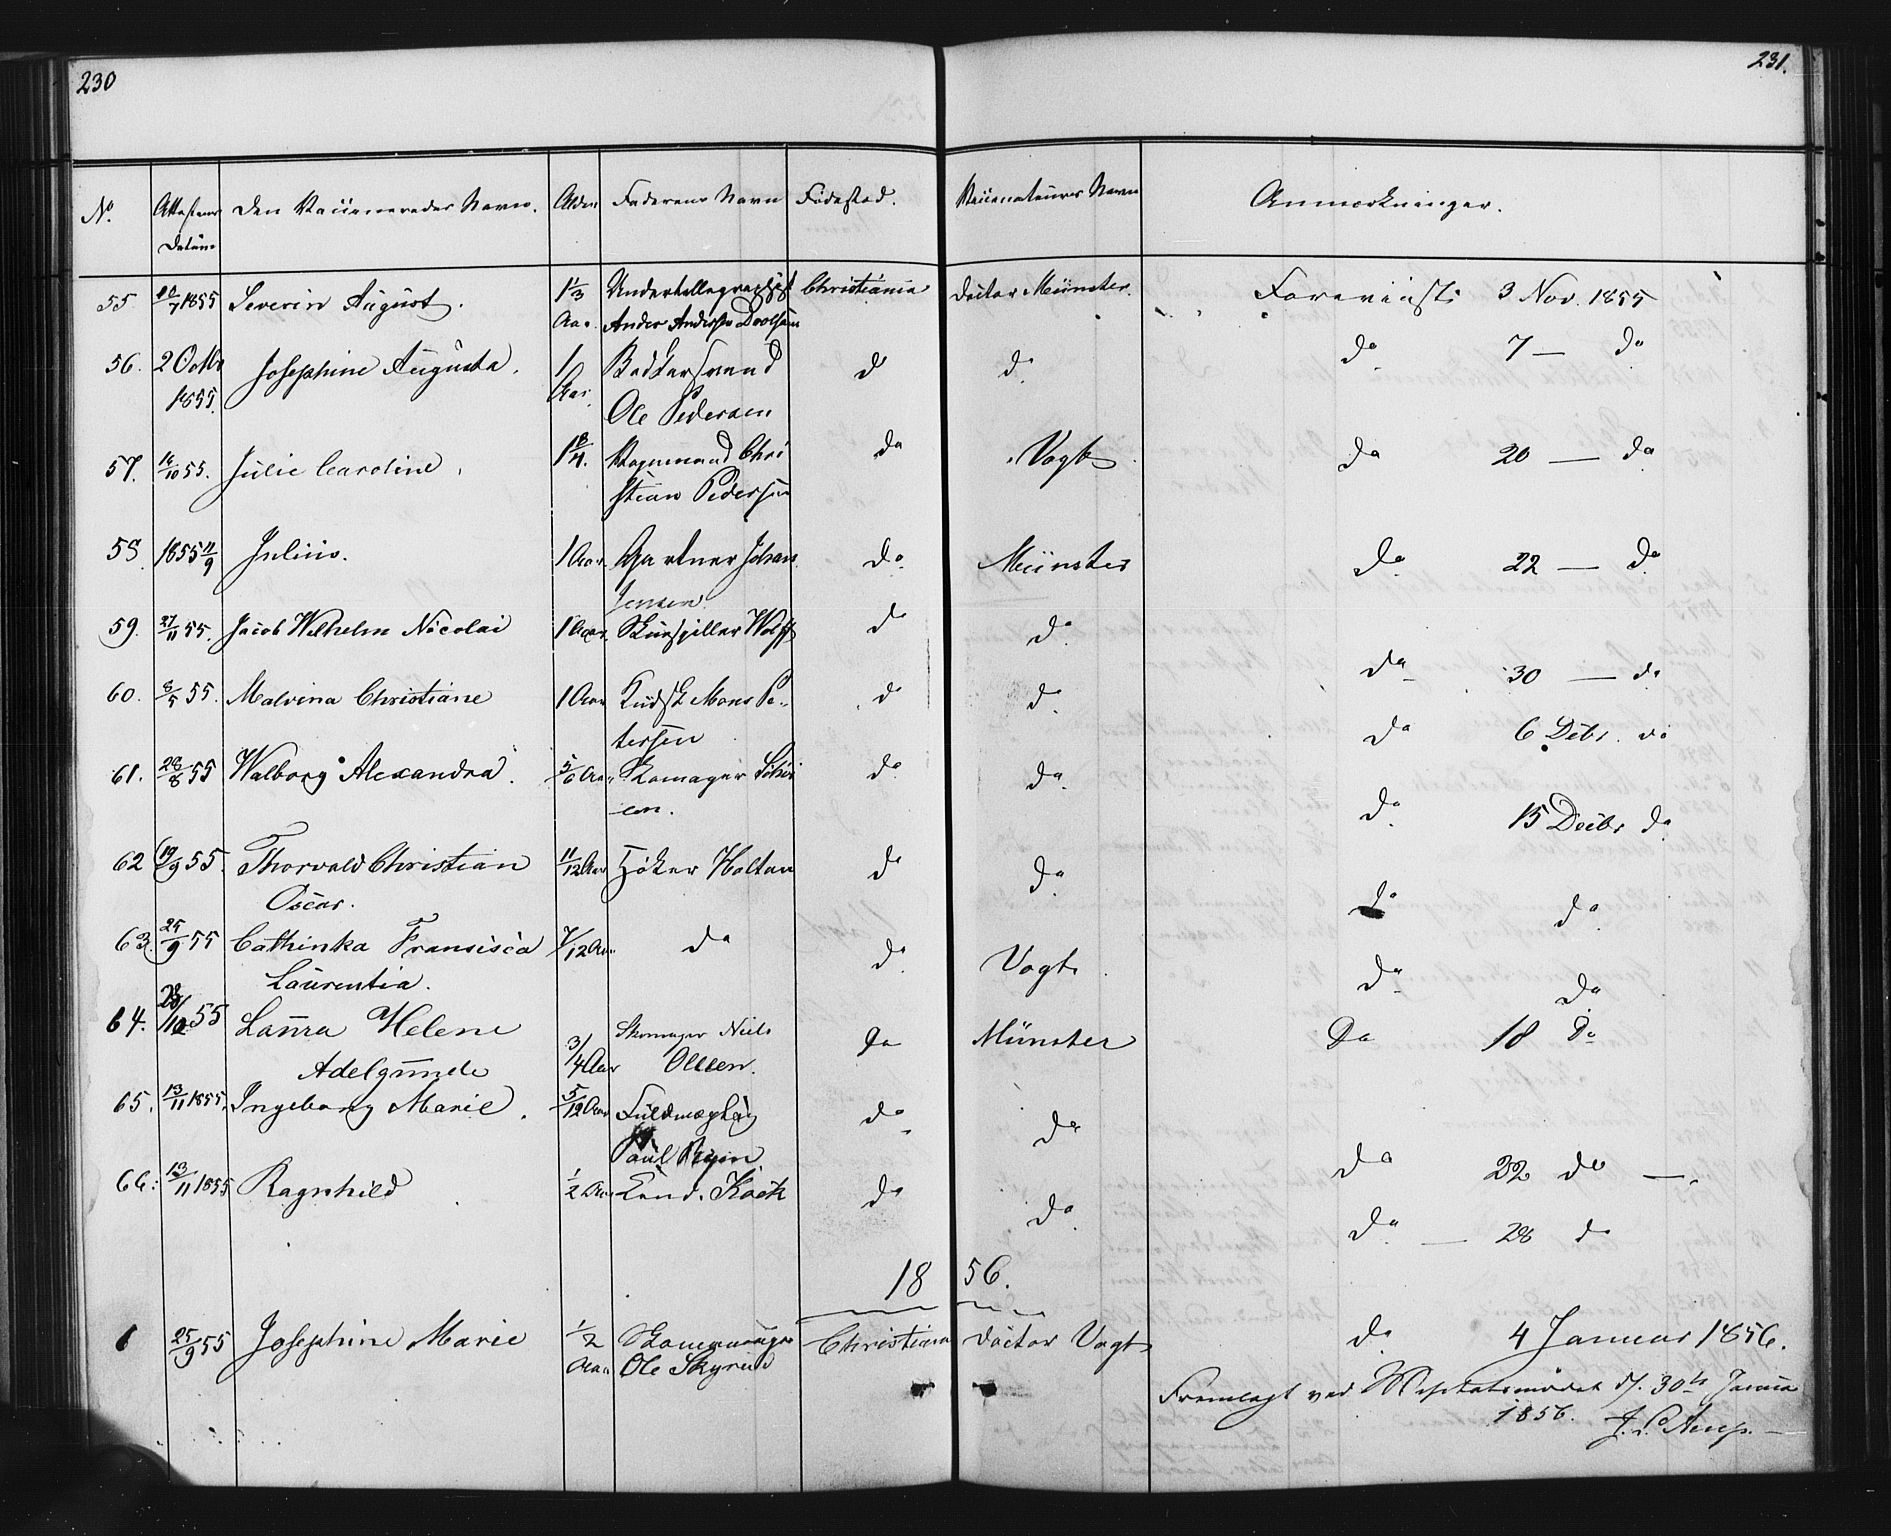 230
231.
No. Attestens Datum Den Vaccineredes Navn. Alder Faderens Navn Födested. Vaccinateurens Navn Anmærkninger.
55. 20/7 1855 Severin August. 1 1/3 Christiania Doctor Münster. Forevist 3 Nov. 1855
Aar. Anders Andersen
56. 2 Octbr Josephine Augusta. 1 do do do 7 — do
1855. Aar. Ole Pedersen
57. 16/10 55. Julie Caroline. do Vogt do 20 — do
stian Pedersen
58. 1855 11/9 Julius. 1 Aar. Gartner Johan do Münster do 22 — do
Jensen.
59. 27/11 55. Jacob Wilhelm Nicolai 1 Aar. Skuespiller Wolff do do
do 30 — do
60. 8/5 55. Malvina Christiane 1 Aar Kudsk Mons Pe- do do
tersen do 6 Decbr. do
61. 28/8 55 Walborg Alexandra. Skomager do do
sen. do 15 Decbr do
62 19/9 55. Thorvald Christian 11/12 Aar Höker Holtan do do
Oscar. do do
63. 25/9 55 Cathinka Fransisca 7/12 Aar do do Vogt
Laurentia. do do
64. 55 Laura Helene Skomager Niels do Münster do 18 do
Adelgunde 3/4 Aar Olsen.
65. 13/11 1855. Ingeborg Marie. 5/12 Aar Fuldmægtig do do
Paul do 22 do —
66. 13/11 1855 Ragnhild 1/2 Aar Cand. do do
do — 28 do
1856.
1 25/9 55 Josephine Marie 1/2 Skomager Christiania Doctor Vogt do 4 Januar 1856.
Aar Ole
Fremlagt ved Visitatsmödet d. 30te Janua
1856.